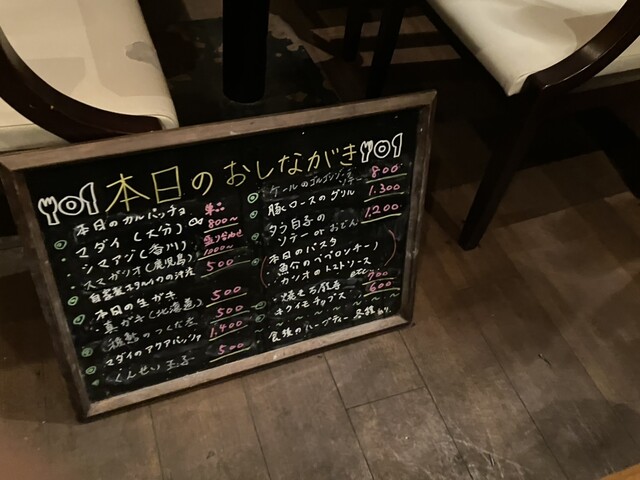 本日のおしながき
本日のカルパッチョ 単品
マダイ(大分) 800〜
シマアジ(香川) 盛り合わせ
スマガツオ(鹿児島) 1000〜
自家製ホタルイカの沖漬 500
本日の生ガキ
真ガキ(北海道) 500
つくだ煮 500
マダイのアクアパッツァ 1,400
くんせい玉子 500
ケールのゴルゴンゾーラ 800
豚ロースのグリル 1,300
タラ白子の 1,200
ソテー or おでん
本日のパスタ
魚介のペペロンチーノ
カツオのトマトソース
etc
700
キクイモチップス 600
食後のハーブティー 各種あり